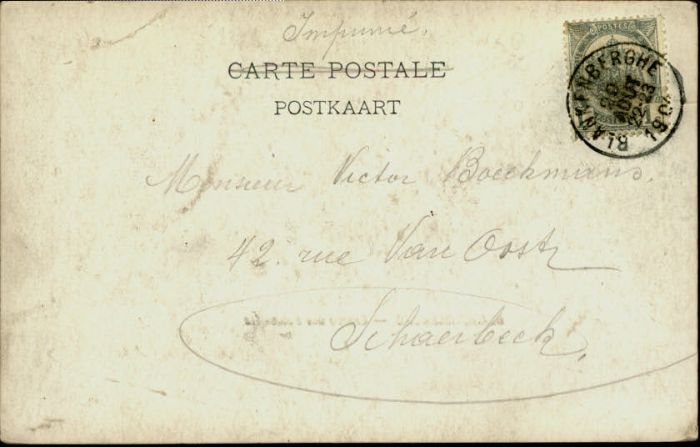 Imprimé.
CARTE POSTALE
POSTKAART
POSTES
BLANKENBERGHE
20
AOUT
12-13
Monsieur Victor Boeckmans.
42. rue Van Oost
Schaerbeek.